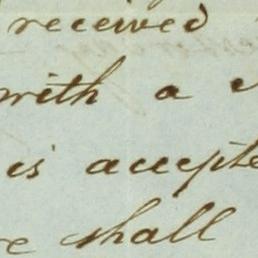 received
with a
is accepte
shall